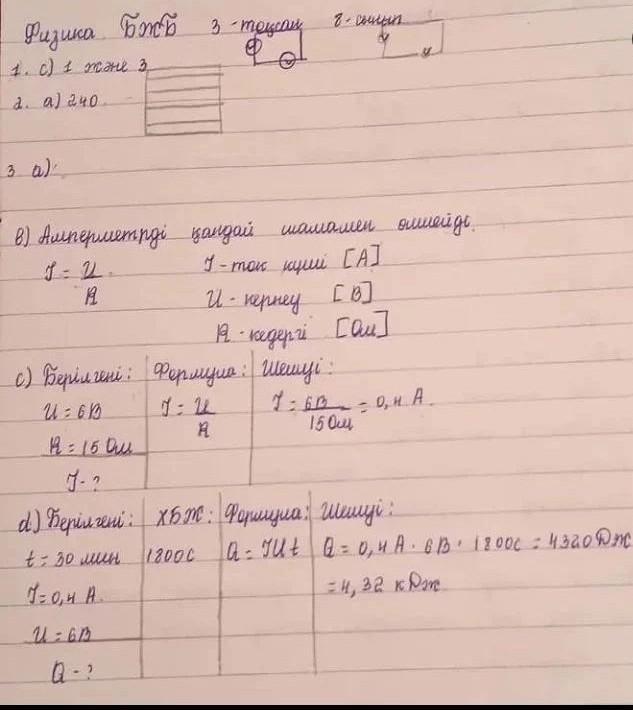 Физика БЖБ 3-тоқсан 8-сынып
1. c) 1 және 3
2. a) 240
3 a):
b) Амперметрді қандай шамамен өлшейді.
I = U/R I - ток күші [A]
U - кернеу [B]
R - кедергі [Ом]
c) Берілгені: Формула: Шешуі:
U = 6В I = U/R I = 6В/15Ом = 0,4 А.
R = 15 Ом
I - ?
d) Берілгені: ХБЖ: Формула: Шешуі:
t = 30 мин 1800с Q = IUt Q = 0,4 А · 6В · 1800с = 4320 Дж
I = 0,4 А = 4,32 кДж
U = 6В
Q - ?